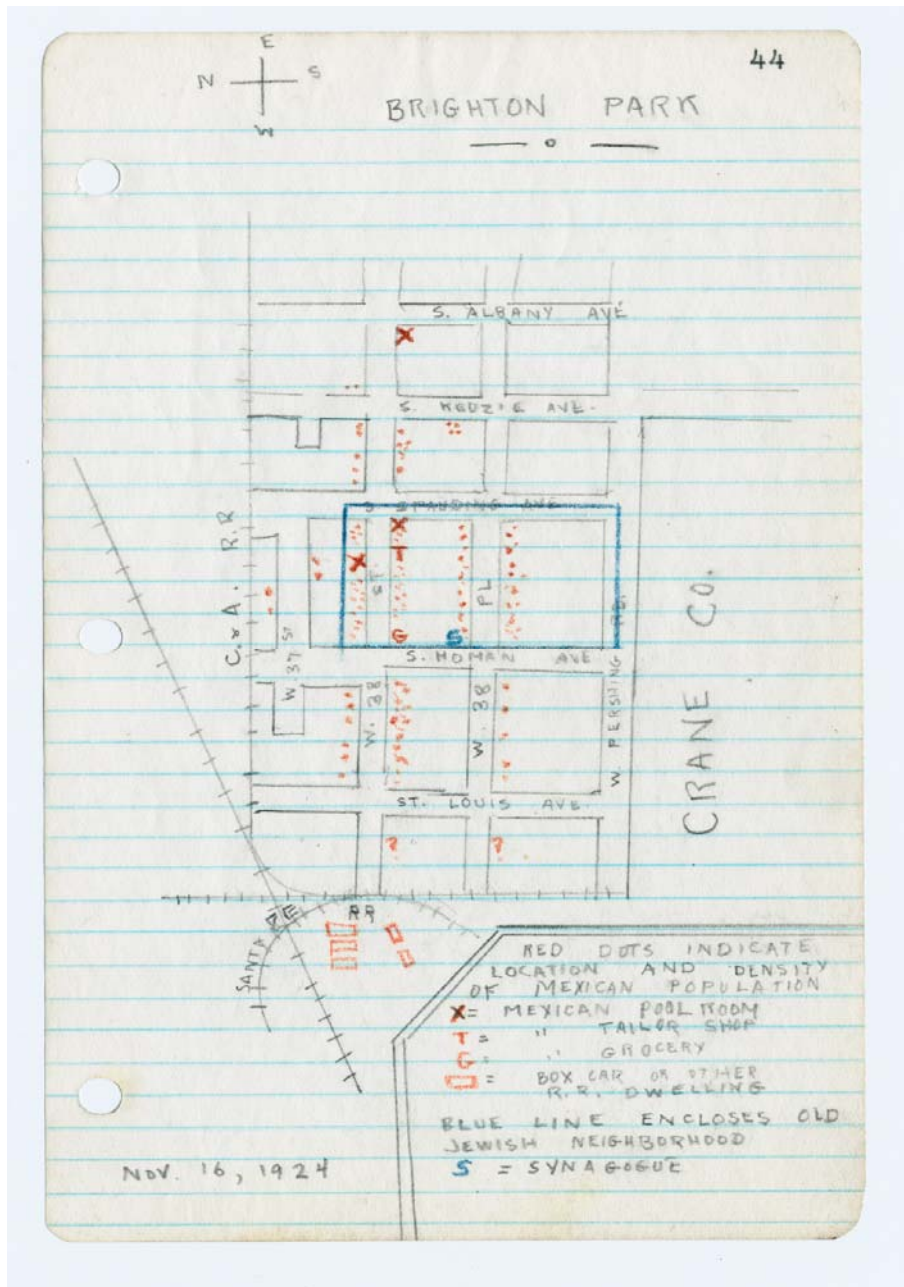 44
E
N S
W
BRIGHTON PARK
S. ALBANY AVE
S. KEDZIE AVE.
S SPAULDING AVE
C. & A. R.R
W. 37 ST
W. 38 ST.
T
G
S
W. 38 PL
W. PERSHING RD.
CRANE CO.
S. HOMAN AVE
ST. LOUIS AVE.
? ?
SANTA FE RR
RED DOTS INDICATE
LOCATION AND DENSITY
OF MEXICAN POPULATION
X = MEXICAN POOL ROOM
T = " TAILOR SHOP
G = " GROCERY
= BOX CAR OR OTHER
R.R. DWELLING
BLUE LINE ENCLOSES OLD
JEWISH NEIGHBORHOOD
S = SYNAGOGUE
NOV. 16, 1924